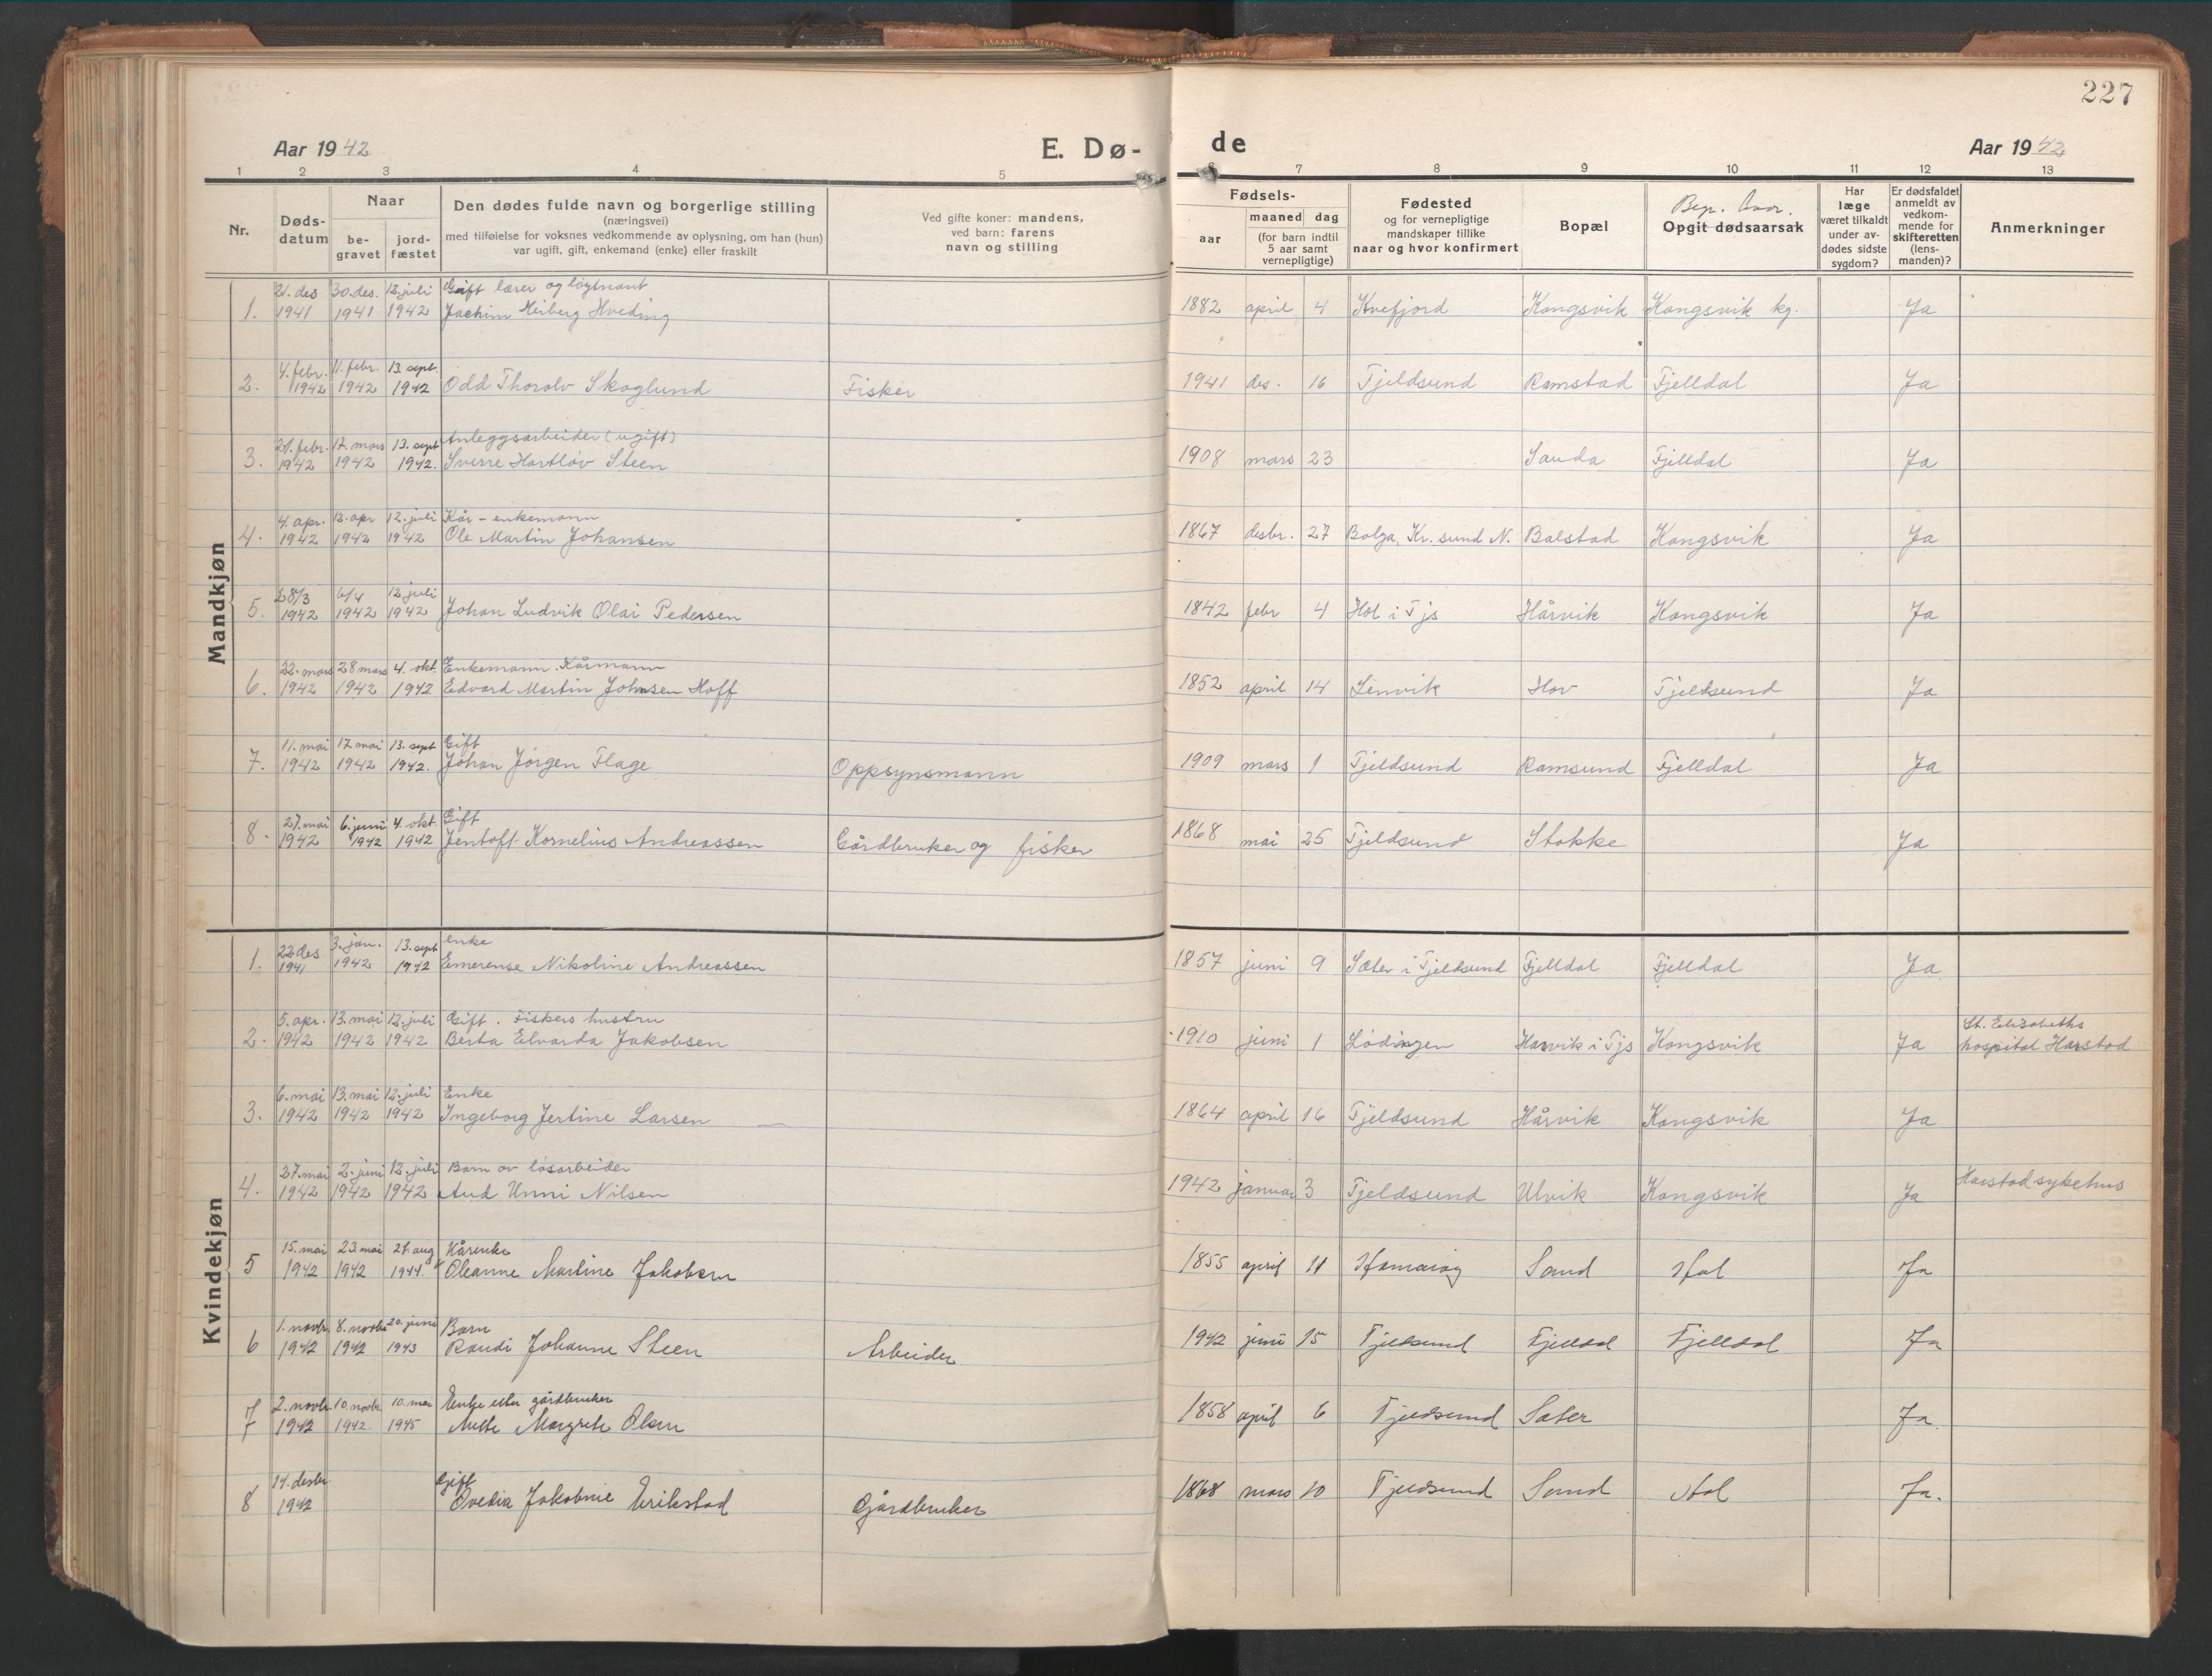 227
Aar 1942 E. Dø- de Aar 1942
1 2 3 4 5 6 7 8 9 10 11 12 13
Nr.
Døds-
datum
Naar
be-
gravet
jord-
fæstet
Den dødes fulde navn og borgerlige stilling
(næringsvei)
med tilføielse for voksnes vedkommende av oplysning, om han (hun)
var ugift, gift, enkemand (enke) eller fraskilt
Ved gifte koner: mandens,
ved barn: farens
navn og stilling
Fødsels-
aar
maaned dag
(for barn indtil
5 aar samt
vernepligtige)
Fødested
og for vernepligtige
mandskaper tillike
naar og hvor konfirmert
Bopæl
Opgit dødsaarsak
Har
læge
været tilkaldt
under av-
dødes sidste
sygdom?
Er dødsfaldet
anmeldt av
vedkom-
mende for
skifteretten
(lens-
manden)?
Anmerkninger
Mandkjøn
21. des 30. des. 12. juli Gift lærer og løytnant
1. 1941 1941 1942 Joachim Heiberg Hveding 1882 april 4 Kvefjord Kongsvik Kongsvik kg. Ja
4. febr. 11. febr. 13. sept.
2. 1942 1942 1942 Odd Thorolv Skoglund Fisker 1941 des. 16 Tjeldsund Ramstad Fjelldal Ja
febr. 17. mars 13. sept Anleggsarbeider (ugift)
3. 1942 1942 1942. Sverre Hartløv Steen 1908 mars 23 Sauda Fjelldal Ja
4. apr. 12. apr 12. juli Kår - enkemann
4. 1942 1942 1942 Ole Martin Johansen 1867 desbr. 27 Bolga, Kr. sund N. Balstad Kongsvik Ja
28/3 6/4 12 juli
5. 1942 1942 1942 Johan Ludvik Olai Pedersen 1842 febr 4 Hol i Tjs Hårvik Kongsvik Ja
22. mars 28 mars 4. okt. Enkemann. Kårmann
6. 1942 1942 1942 Edvard Martin Johnsen Hoff 1852 april 14 Lenvik Hov Tjeldsund Ja
11. mai 17. mai 13. sept Gift
7. 1942 1942 1942. Johan Jørgen Flage Oppsynsmann 1909 mars 1 Tjeldsund Ramsund Fjelldal Ja
27. mai 6. juni 4. okt. Gift
8. 1942 1942 1942 Jentoft Kornelius Andreassen Gårdbruker og fisker 1868 mai 25 Tjeldsund Stokke Ja
Kvindekjøn
22. des 3. jan. 13. sept enke
1. 1941 1942 1942 Emerense Nikoline Andreassen 1857 juni 9 Sæter i Tjeldsund Fjelldal Fjelldal Ja
5. apr. 13. mai 12. juli Gift. Fiskers hustru St. Elisabeths
2. 1942 1942 1942 Berta Elvarda Jakobsen 1910 juni 1 Lødingen Hårvik i Tjs Kongsvik Ja hospital Harstad
6. mai 13. mai 12. juli Enke
3. 1942 1942 1942 Ingeborg Jertine Larsen 1864 april 16 Tjeldsund Hårvik Kongsvik Ja
27. mai 2. juni 12. juli Barn av løsarbeider
4. 1942 1942 1942 Aud Unni Nilsen 1942 januar 3 Tjeldsund Ulvik Kongsvik Ja Harstad sykehus
15. mai 23. mai 27. aug Kårenke
5 1942 1942 1944. Oleanne Martine Jakobsen 1855 april 11 Hamarøy Sand Hol Ja
1. novbr. 8. novbr 20. juni Barn
6 1942 1942 1943 Randi Johanne Steen Arbeider 1942 juni 15 Tjeldsund Fjelldal Fjelldal Ja
2. novbr. 10. novbr. 10. mai Enke etter gårdbruker
7 1942 1942 1945 Mette Margrete Olsen 1858 april 6 Tjeldsund Sæter Ja.
14. desbr Gift
8 1942 Ovedia Jakobine Erikstad Gårdbruker 1868 mars 10 Tjeldsund Sand Hol Ja.